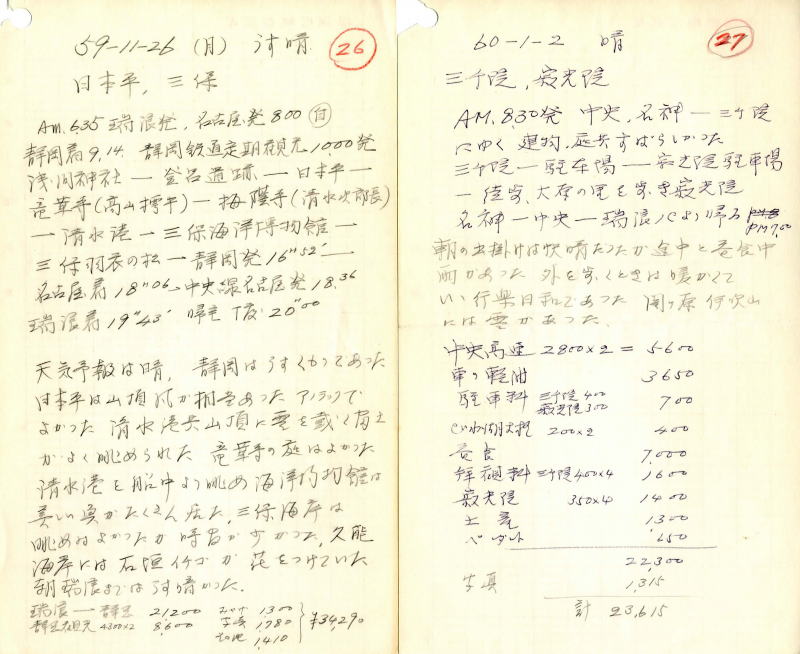 59-11-26 (月) うす晴
26
日本平, 三保
Am. 6.35 瑞浪発, 名古屋発 8.00
静岡着 9.14 静岡鉄道定期観光 10.00発
浅间神社 — 登呂遺跡 — 日本平 —
竜華寺(高山樗牛) — 梅蔭寺(清水次郎長)
— 清水港 — 三保海洋博物館 —
三保羽衣の松 — 静岡発 16"52' —
名古屋着 18"06 中央線名古屋発 18.36
瑞浪着 19"43' 帰宅 20"00
天気予報は晴, 静岡はうすくもってあった
日本平は山頂 風が相当あった アノラックで
よかった 清水港与山頂に雲を戴く富士
がよく眺められた 竜華寺の庭はよかった
清水港を船中より眺め海洋博物館は
美しい魚がたくさん居た, 三保海岸は
眺めはよかったが時間が少かった, 久能
海岸には石垣イチゴが花をつけていた
朝瑞浪まではうす晴かった.
瑞浪 — 静岡 21,200
静岡観光 4300×2 8,600
1300
写真 1,780
1,410
¥34,290
60-1-2 晴
27
三千院, 寂光院
AM. 8.30発 中央, 名神 — 三千院
にゆく 建物, 庭共すばらしかった
三千院 — 駐車場 — 寂光院駐車場
— 徒歩, 大原の里を歩き寂光院
名神 — 中央 — 瑞浪 ICより帰る
PM7.00
朝の出掛けは快晴だったが途中と昼食中
雨があった 外を歩くときは暖かくて
いゝ行楽日和であった 関ヶ原 伊吹山
には雪があった.
中央高速 2800×2 = 5600
車の軽油 3650
駐車料 三千院 400 寂光院 300 700
びわ湖大橋 200×2 400
昼食 7,000
拝観料 三千院 400×4 1600
寂光院 350×4 1400
土産 1,300
650
22,300
写真 1,315
計 23,615